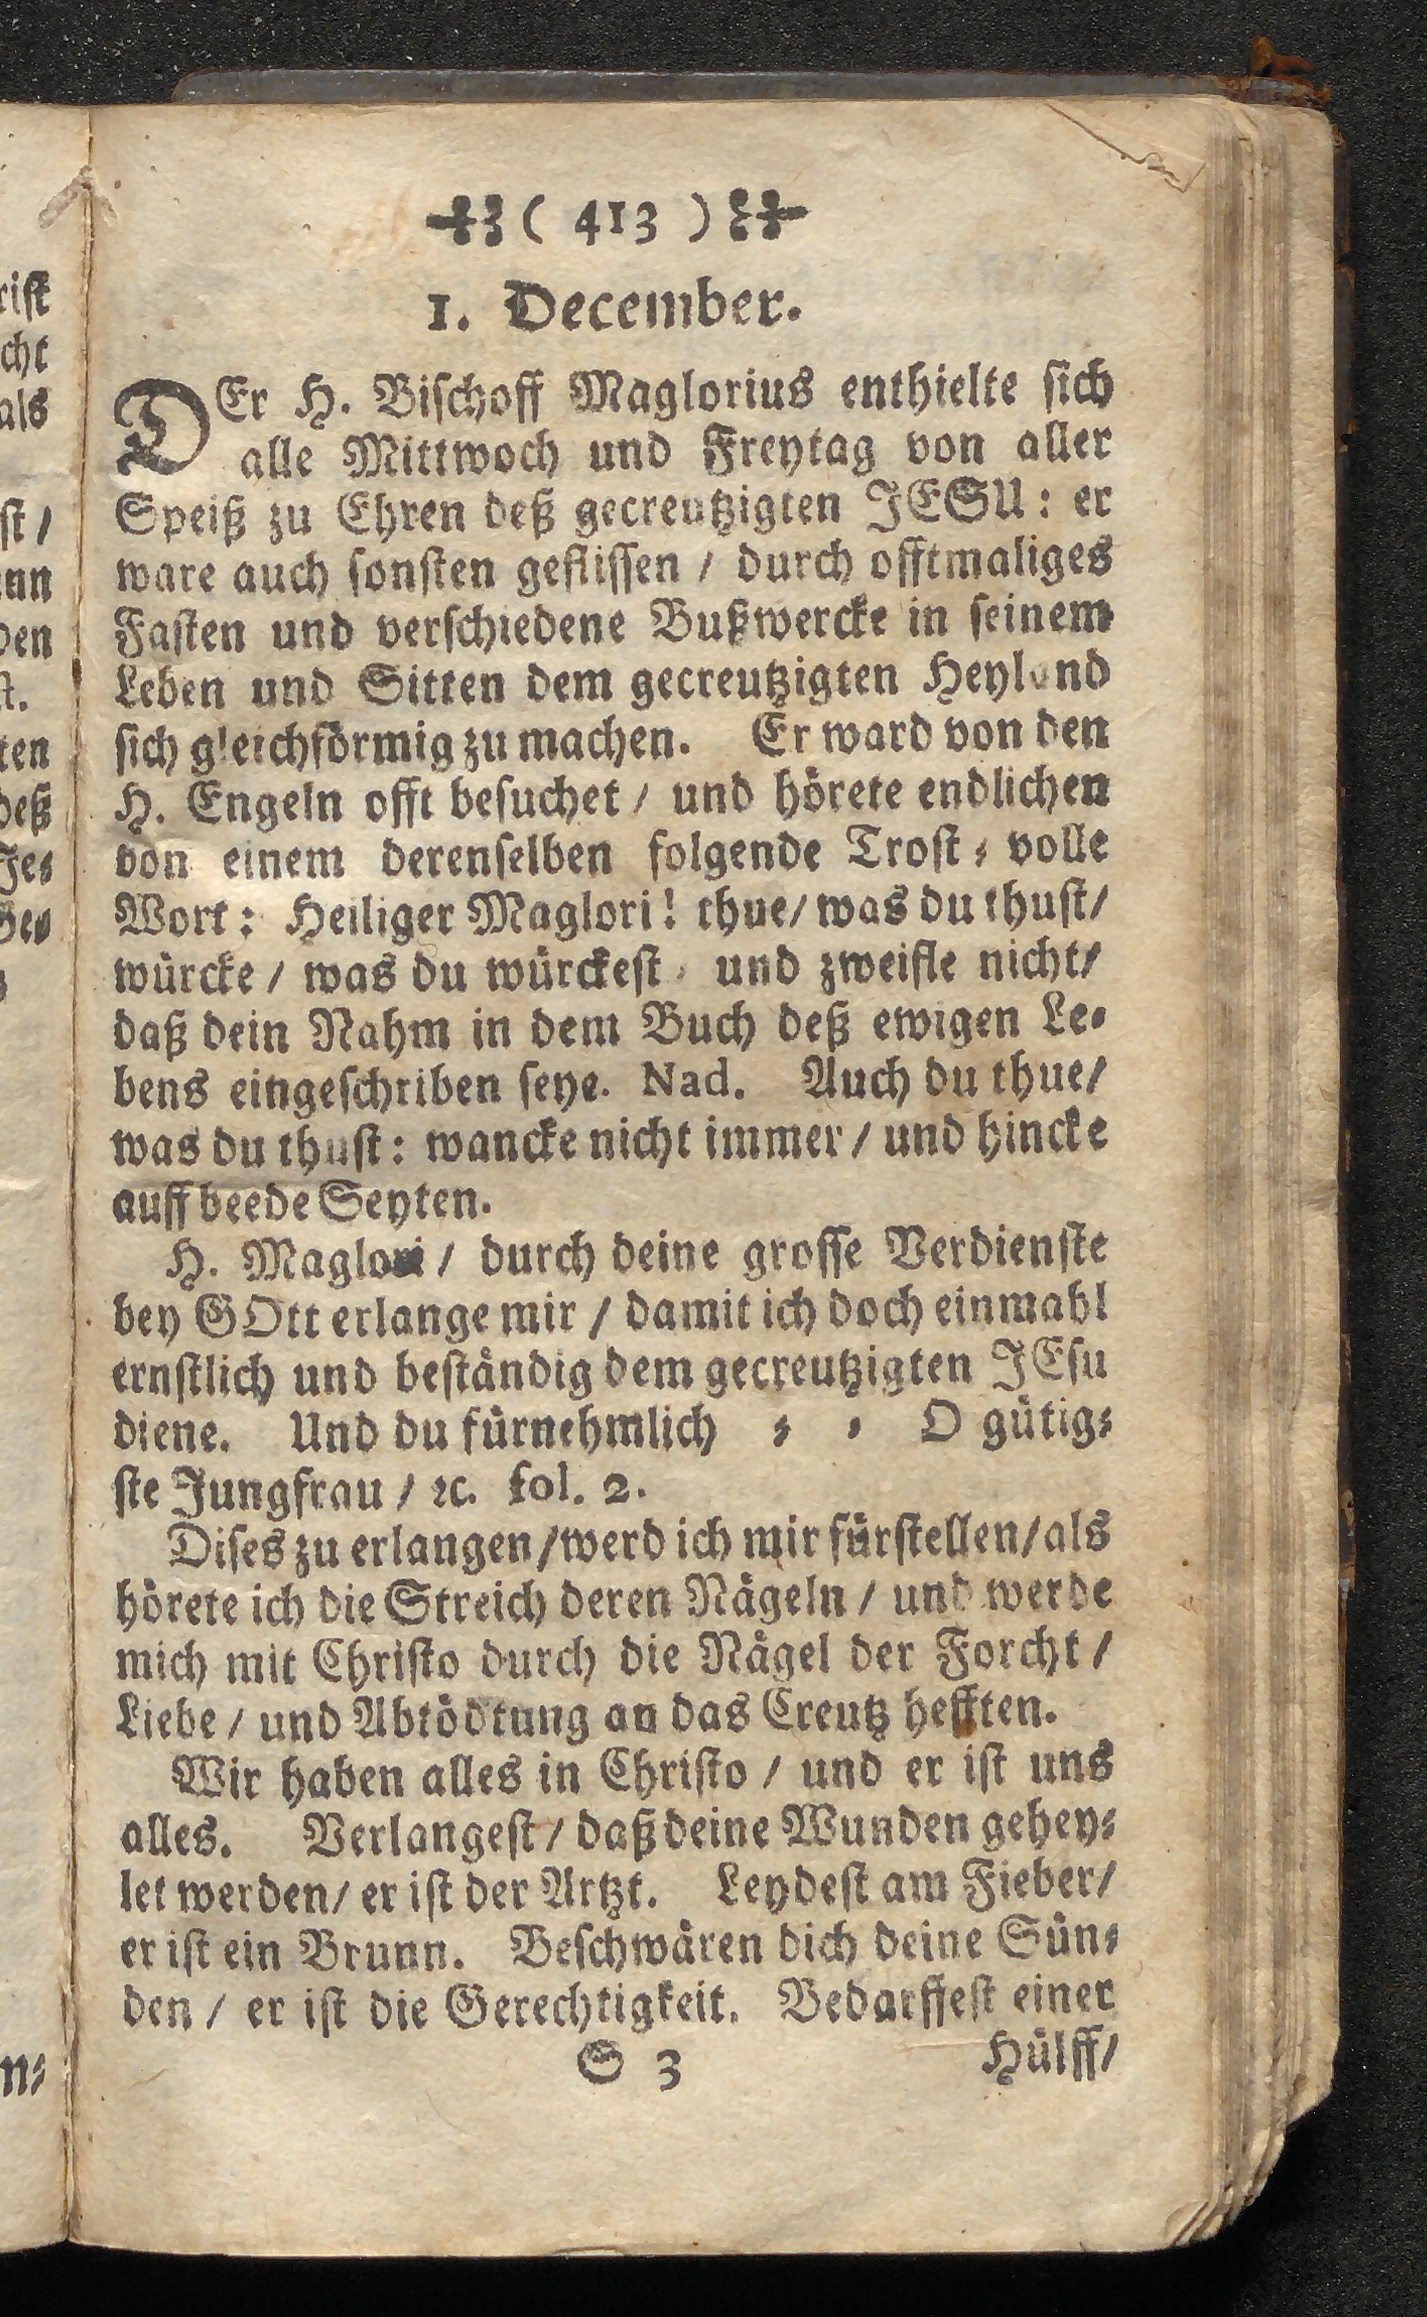 ( 413 )
1. December.
DEr H. Bischoff Maglorius enthielte sich
alle Mittwoch und Freytag von aller
Speiß zu Ehren deß gecreutzigten JESU: er
ware auch sonsten geflissen / durch offtmaliges
Fasten und verschiedene Bußwercke in seinem
Leben und Sitten dem gecreutzigten Heyland
sich gleichförmig zu machen. Er ward von den
H. Engeln offt besuchet / und hörete endlichen
von einem derenselben folgende Trost- volle
Wort: Heiliger Maglori! thue/ was du thust/
würcke / was du würckest, und zweifle nicht/
daß dein Nahm in dem Buch deß ewigen Le-
bens eingeschriben seye. Nad. Auch du thue/
was du thust: wancke nicht immer / und hincke
auff beede Seyten.
H. Maglori / durch deine grosse Verdienste
bey GOtt erlange mir / damit ich doch einmahl
ernstlich und beständig dem gecreutzigten JEsu
diene. Und du fürnehmlich - - O gütig-
ste Jungfrau / ꝛc. fol. 2.
Dises zu erlangen/werd ich mir fürstellen/als
hörete ich die Streich deren Nägeln / und werde
mich mit Christo durch die Nägel der Forcht /
Liebe / und Abtödtung an das Creutz hefften.
Wir haben alles in Christo / und er ist uns
alles. Verlangest / daß deine Wunden gehey-
let werden/ er ist der Artzt. Leydest am Fieber/
er ist ein Brunn. Beschwären dich deine Sün-
den / er ist die Gerechtigkeit. Bedarffest einer
S 3 Hülff/